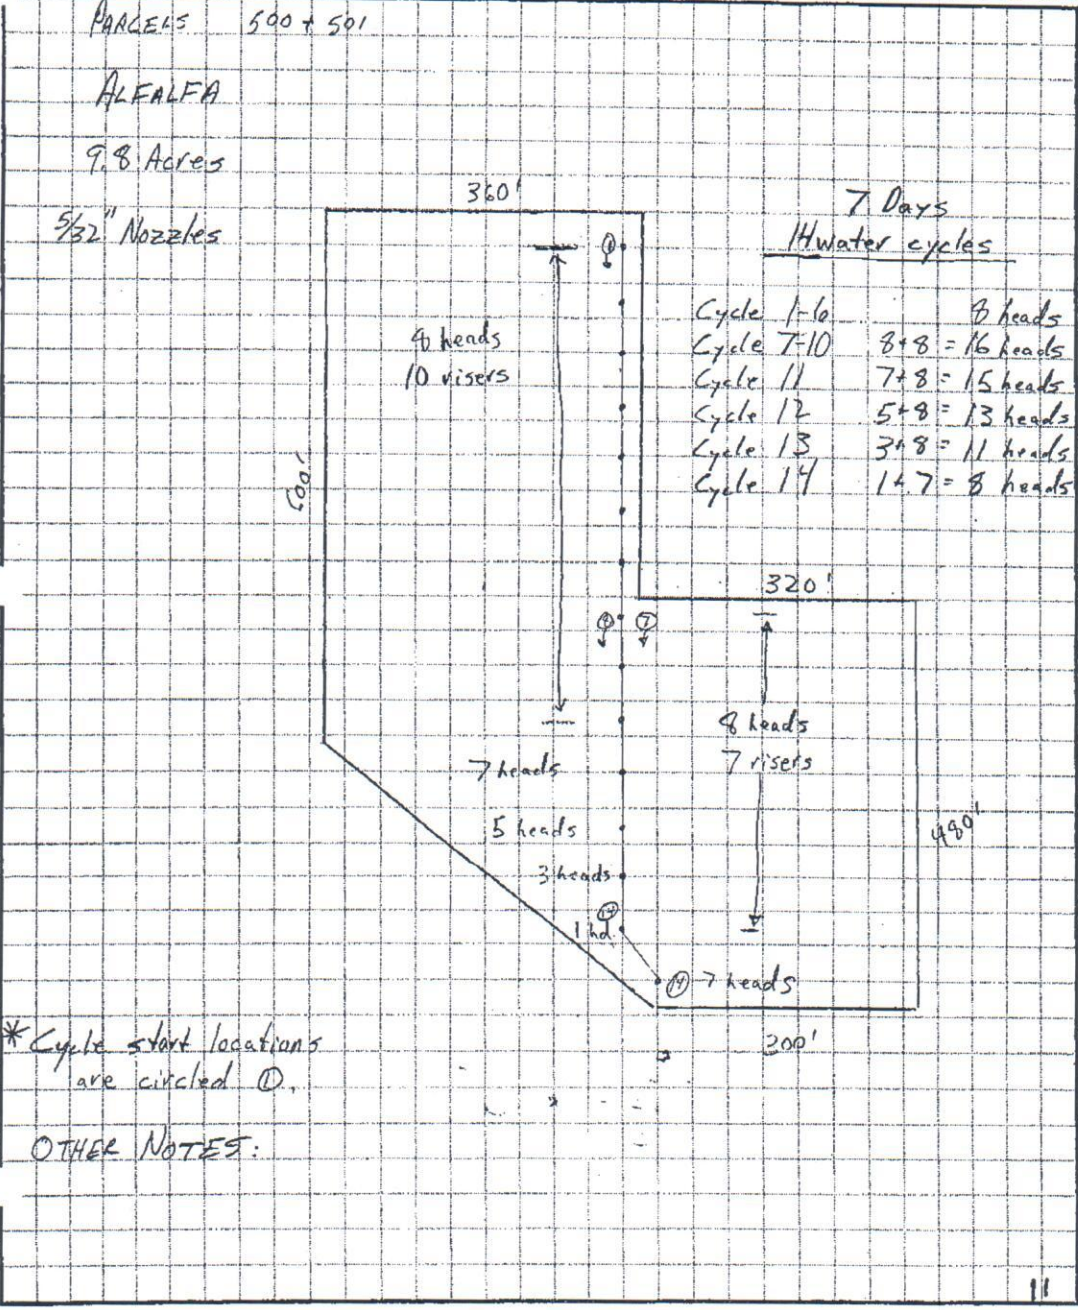 PARCELS 500 + 501
ALFALFA
9.8 Acres
5/32" Nozzles
360'
7 Days
14 water cycles
①
Cycle 1-6 8 heads
Cycle 7-10 8+8 = 16 heads
Cycle 11 7+8 = 15 heads
Cycle 12 5+8 = 13 heads
Cycle 13 3+8 = 11 heads
Cycle 14 1+7 = 8 heads
8 heads
10 risers
600'
320'
⑦
8 heads
7 risers
7 heads
5 heads
3 heads
480'
1 hd.
⑭ 7 heads
300'
* Cycle start locations
are circled ①.
OTHER NOTES:
11